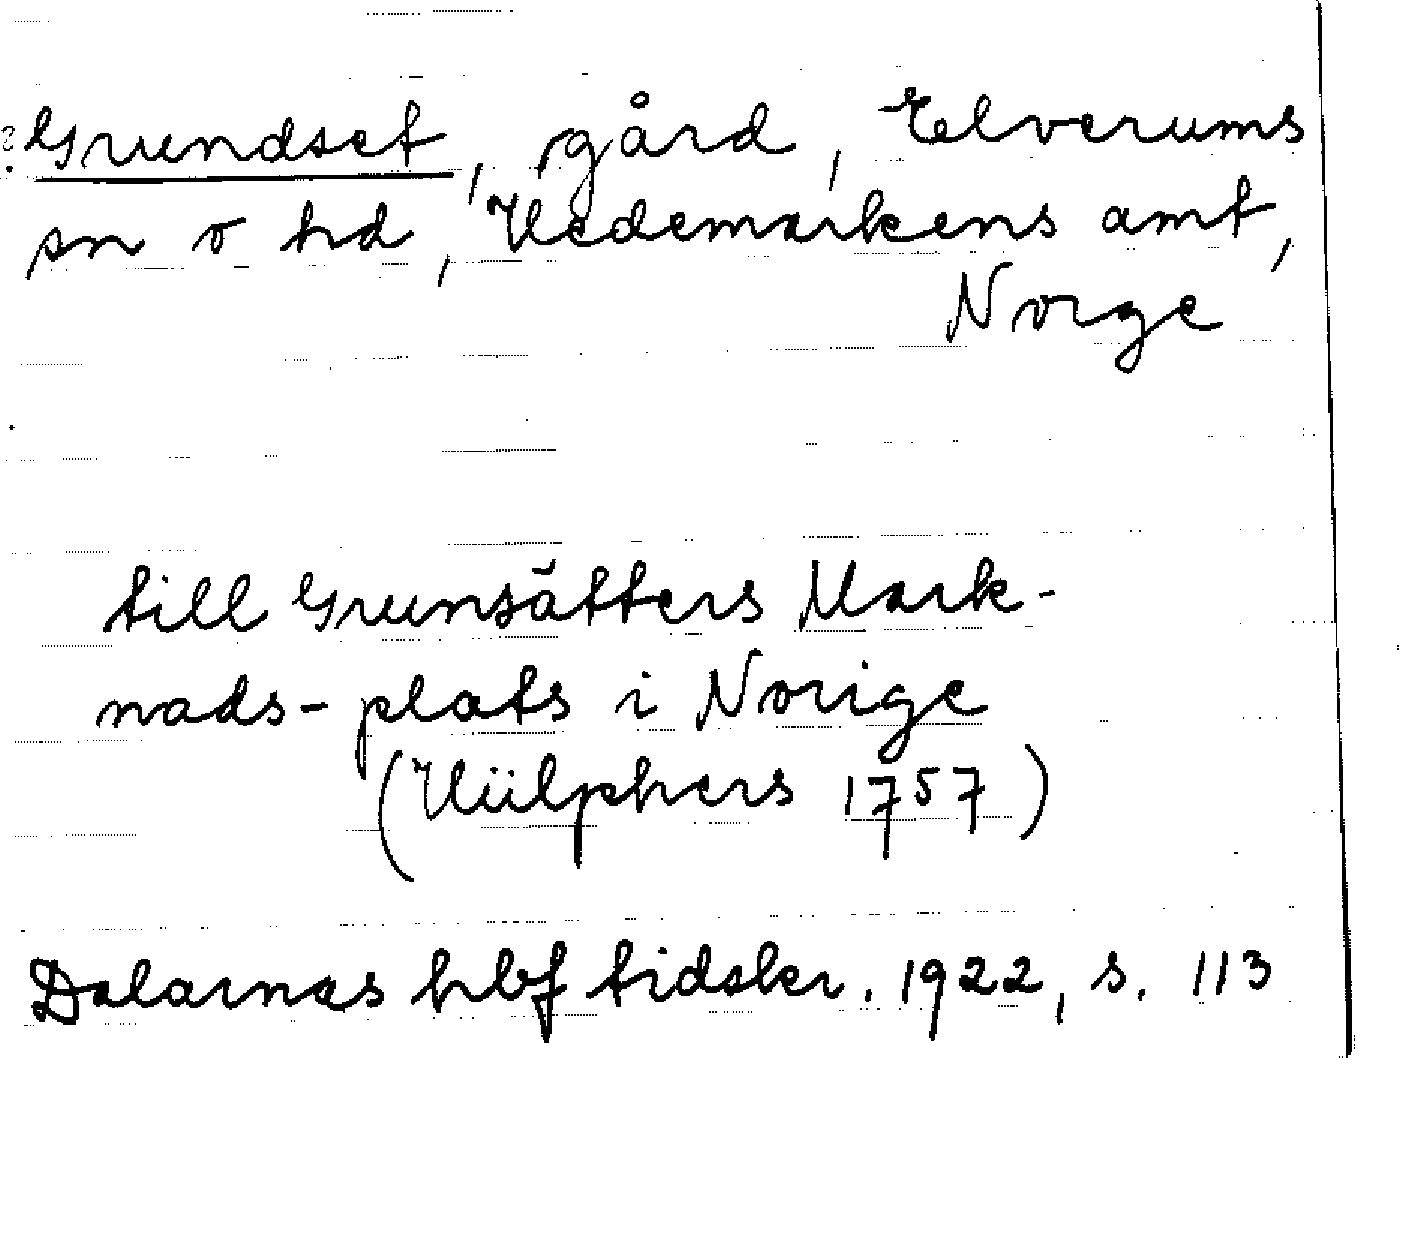 ? Grundset, gård, Elverums
sn o hd, Hedemarkens amt,
Norge
till Grunsätters Mark-
nads-plats i Norige
(Hülphers 1757)
Dalarnas hbf tidskr. 1922, s. 113